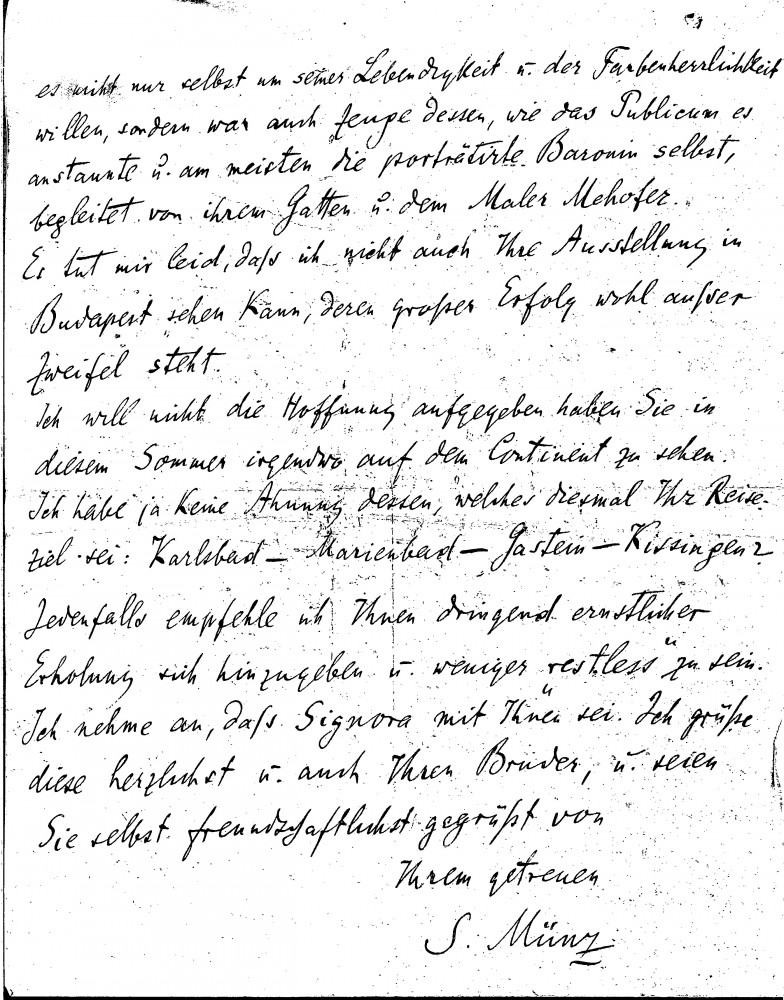 es nicht nur selbst um seiner Lebendigkeit u. der Farbenherrlichkeit
willen, sondern war auch Zeuge dessen, wie das Publicum es
anstaunte u. am meisten die porträtirte Baronin selbst,
begleitet von ihrem Gatten u. dem Maler Mehofer.
Es tut mir leid, daſs ich nicht auch Ihre Ausstellung in
Budapest sehen kann, deren groſser Erfolg wohl auſser
Zweifel steht.
Ich will nicht die Hoffnung aufgegeben haben Sie in
diesem Sommer irgendwo auf dem Continent zu sehen.
Ich habe ja keine Ahnung dessen, welches diesmal Ihr Reise-
ziel sei: Karlsbad – Marienbad – Gastein – Kissingen?
Jedenfalls empfehle ich Ihnen dringend ernstlicher
Erholung sich hinzugeben u. weniger „restless" zu sein.
Ich nehme an, daſs Signora mit Ihnen sei. Ich grüſse
diese herzlichst u. auch Ihren Bruder, u. seien
Sie selbst freundschaftlichst gegrüſst von
Ihrem getreuen
S. Münz